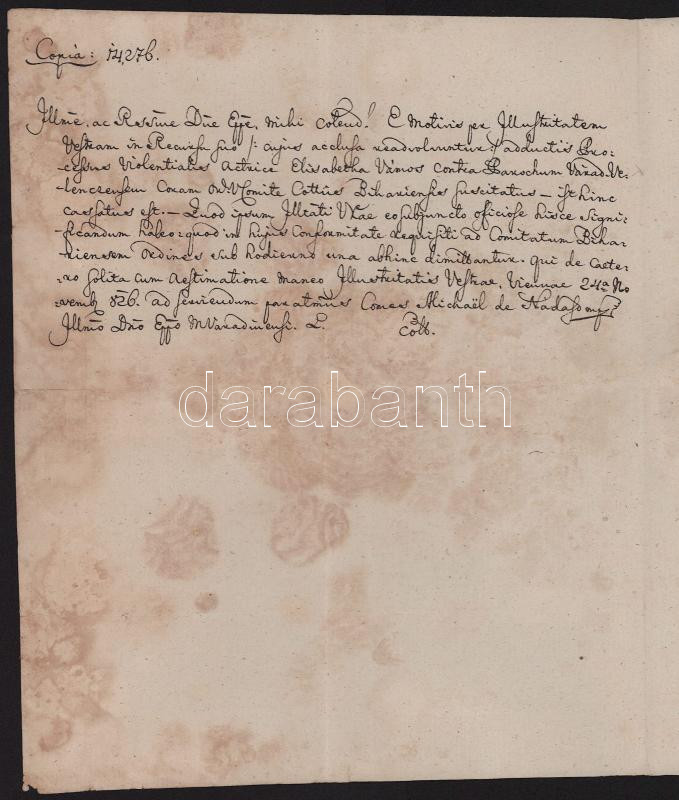 Copia: 14,276.
Illme. ac Rssme Dne Eppe, mihi Colend! E Motivis per Illustritatem
Vestram in Recursu suo /: cujus acclusa readvolvuntur :/ adductis Pro-
cessus Violentialis Actrice Elisabetha Vámos contra Parochum Várad-Ve-
lenczensem Coram Ord. V Comite Cottus Bihariensis suscitatus – isthinc
cassatus est. – Quod ipsum Illtati Vrae eo subjuncto officiose hisce signi-
ficandum habeo: quod in hujus Conformitate requisiti ad Comitatum Biha-
riensem Ordines sub hodierno una abhinc dimittantur. Qui de Caete-
ro solita cum Aestimatione maneo Illustritatis Vestrae, Viennae 24a No
vemb. 826. ad serviendum paratmus Comes Michaël de Nadasd mp.
Illmo Dno Eppo MVaradinensi. L. Coll.
darabanth